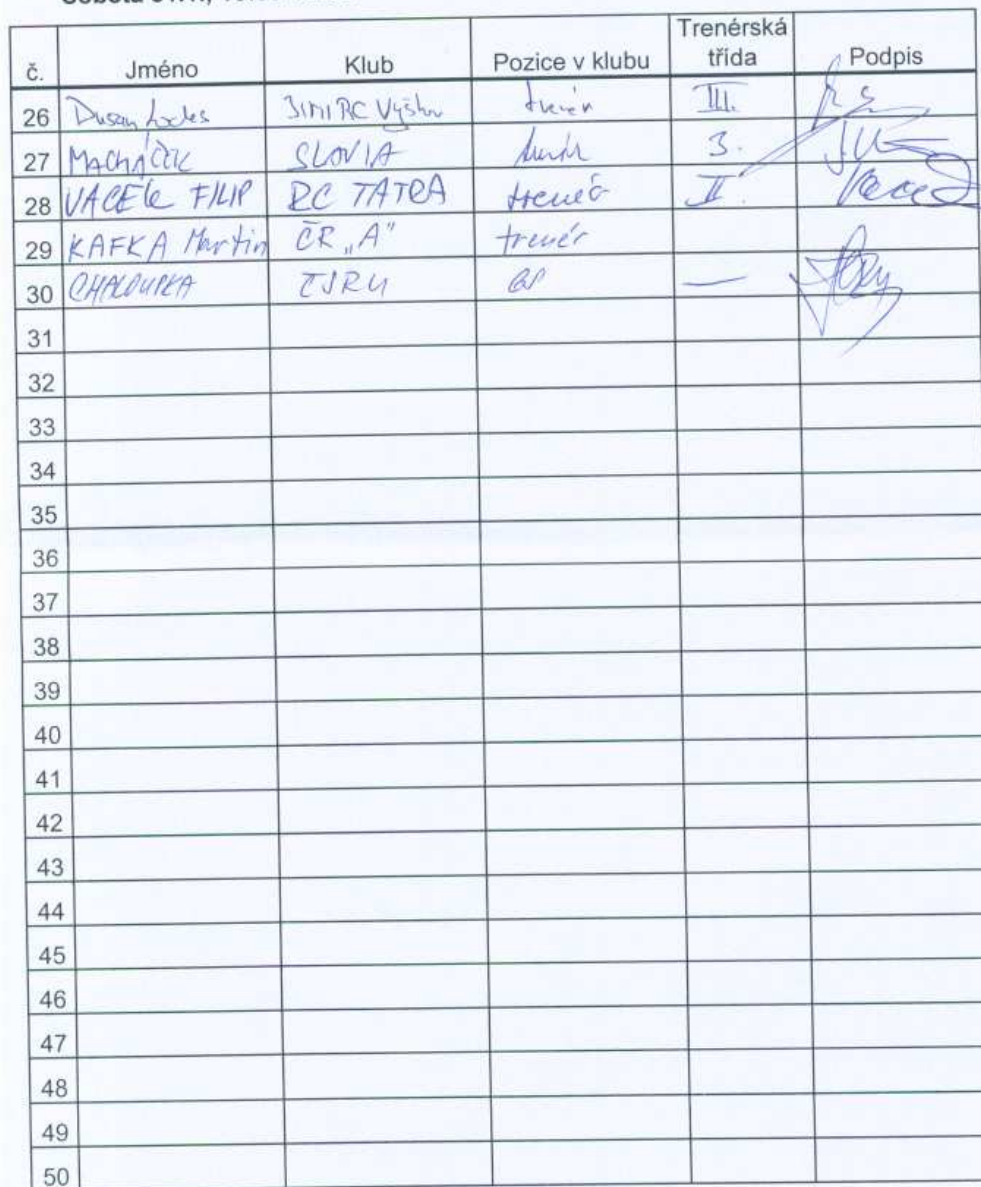 č. Jméno Klub Pozice v klubu Trenérská třída Podpis
26 Dusan JIMI RC Vyškov trenér III.
27 MACHÁČEK SLAVIA trenér 3.
28 VACEK FILIP RC TATRA trenér II.
29 KAFKA Martin ČR „A" trenér
30 CHALOUPKA ČSRU —
31
32
33
34
35
36
37
38
39
40
41
42
43
44
45
46
47
48
49
50